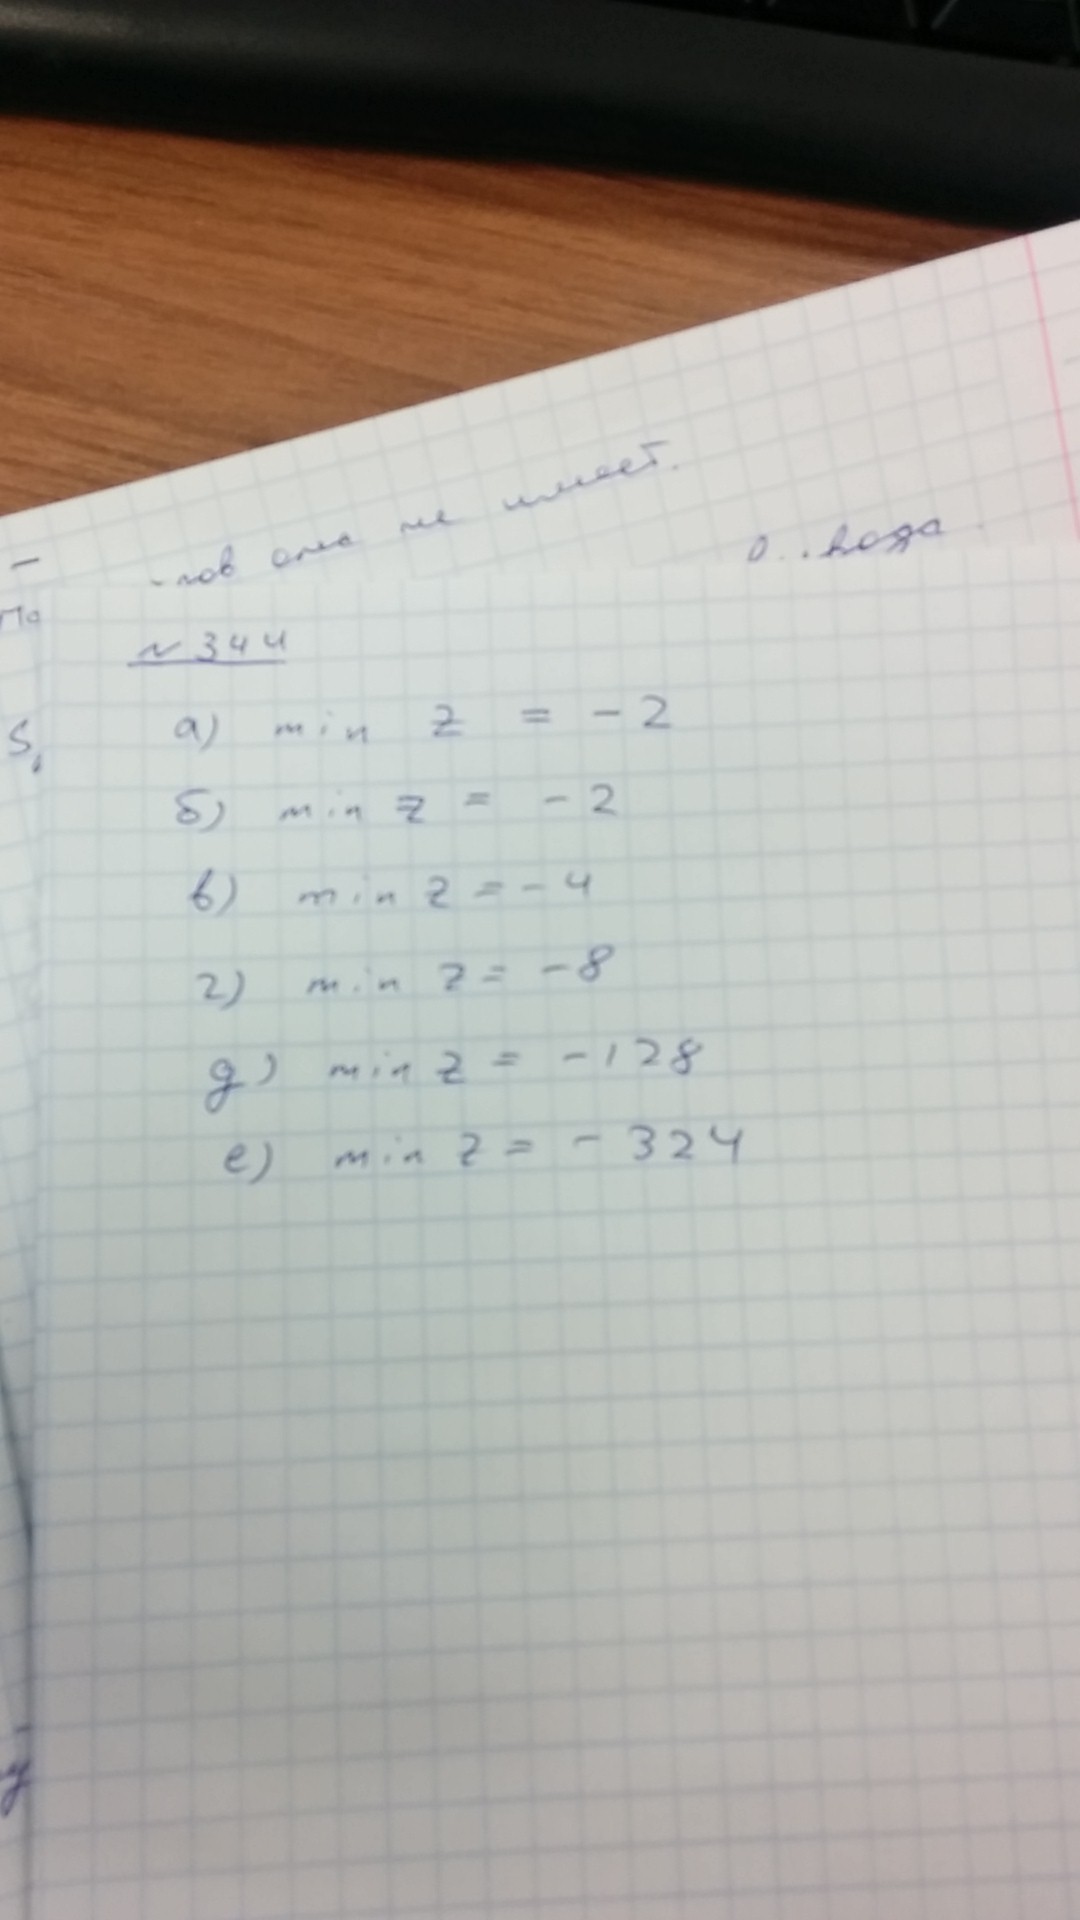 она не имеет.
№ 344
а) min z = -2
б) min z = -2
в) min z = -4
г) min z = -8
д) min z = -128
е) min z = -324